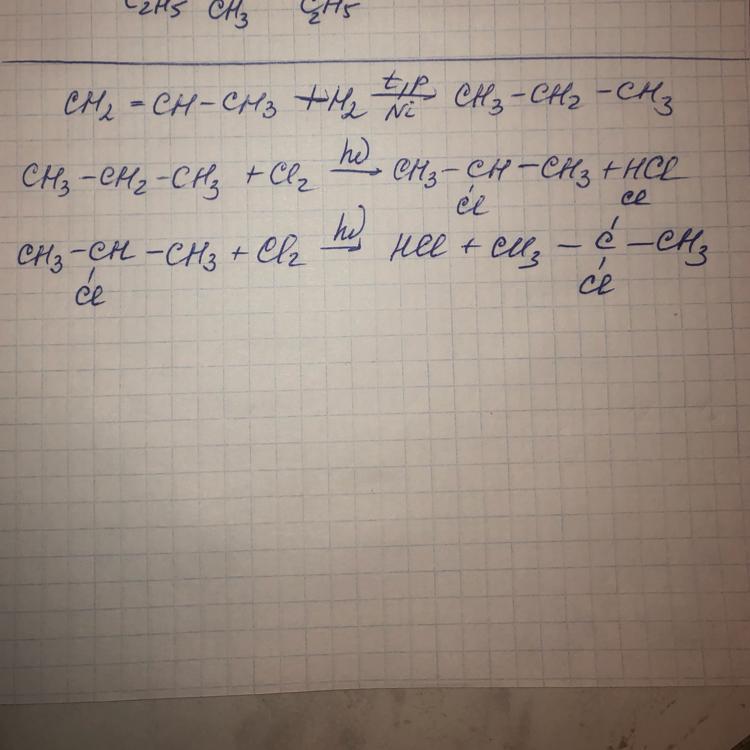 C₂H₅ CH₃ C₂H₅
CH₂ = CH – CH₃ + H₂ t,p → Ni CH₃ – CH₂ – CH₃
CH₃ – CH₂ – CH₃ + Cl₂ hν → CH₃ – CH – CH₃ + HCl
Cl Cl
CH₃ – CH – CH₃ + Cl₂ hν → HCl + CH₃ – C – CH₃
Cl Cl